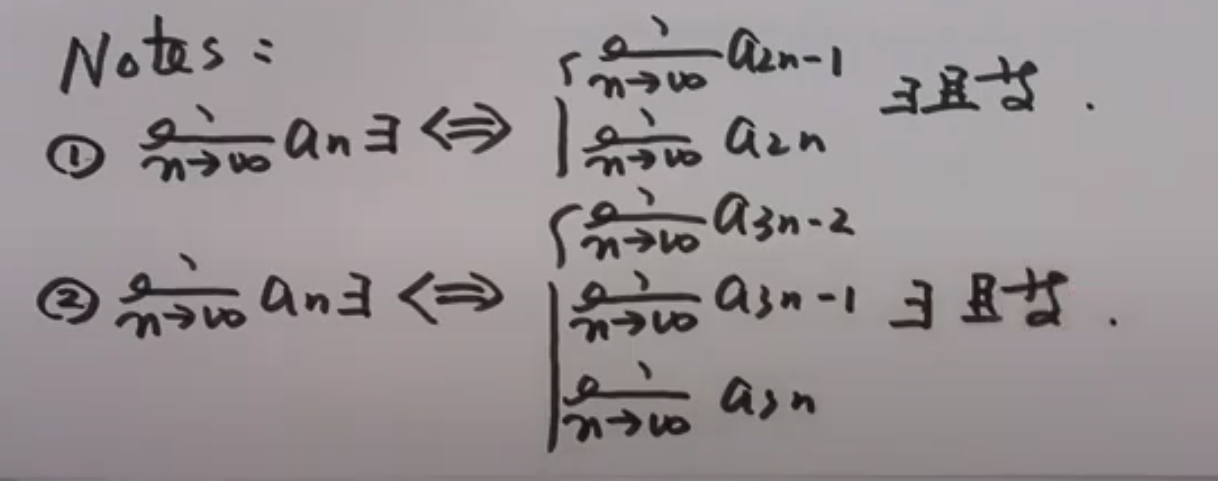 Notes:
① lim n→∞ an ∃ ⇔ { lim n→∞ a2n-1
lim n→∞ a2n ∃且等.
② lim n→∞ an ∃ ⇔ { lim n→∞ a3n-2
lim n→∞ a3n-1 ∃且等.
lim n→∞ a3n